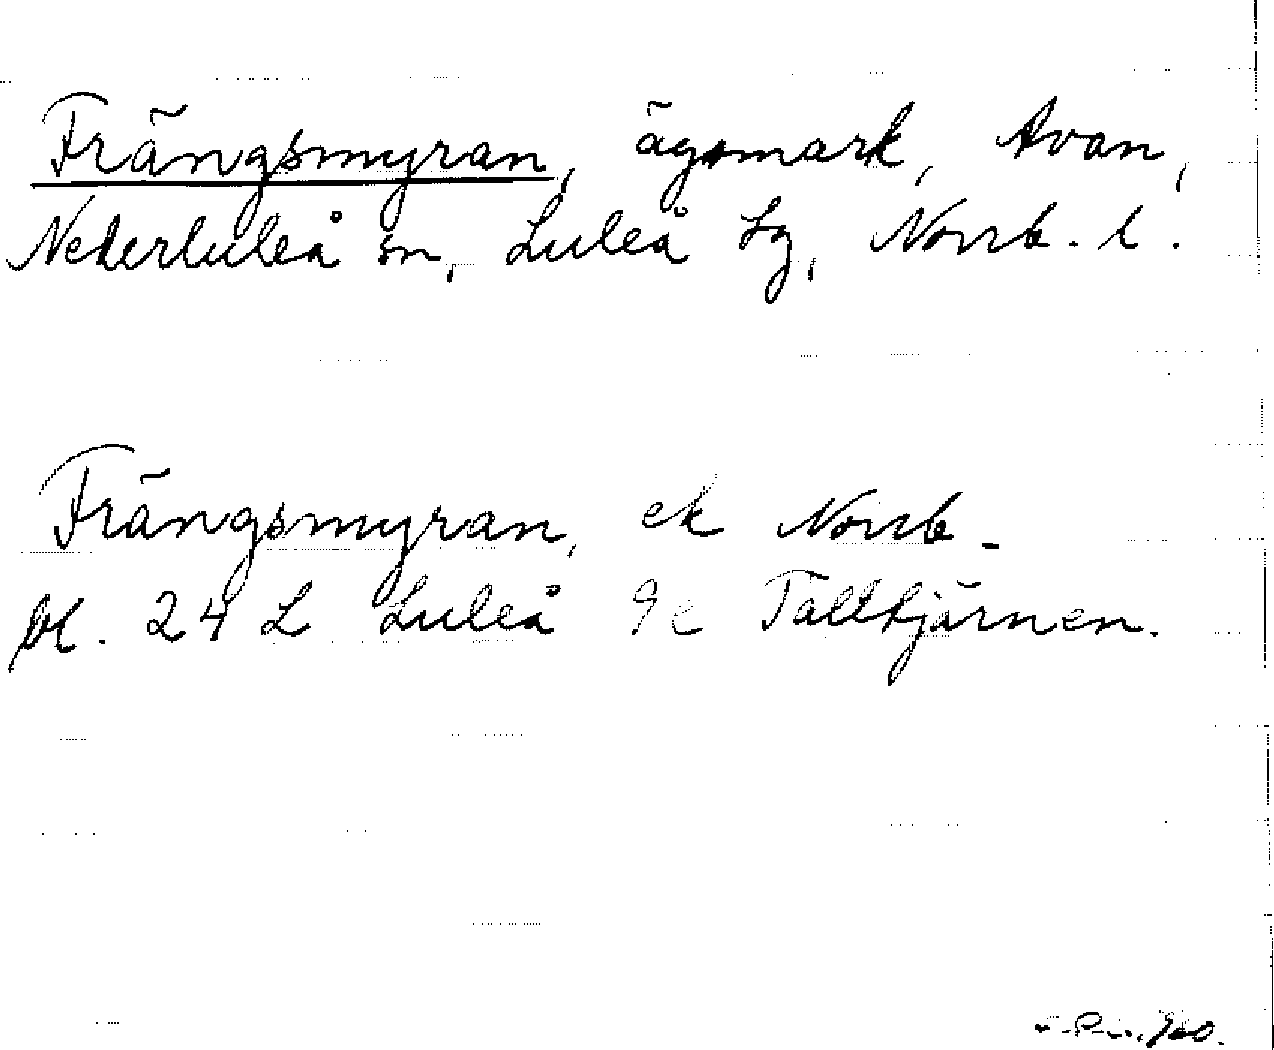 Frängsmyran, ägomark, Avan,
Nederluleå sn, Luleå tg, Norrb. l.
Frängsmyran, ek Norrb -
bl. 24 L Luleå 9e Talltjärnen.